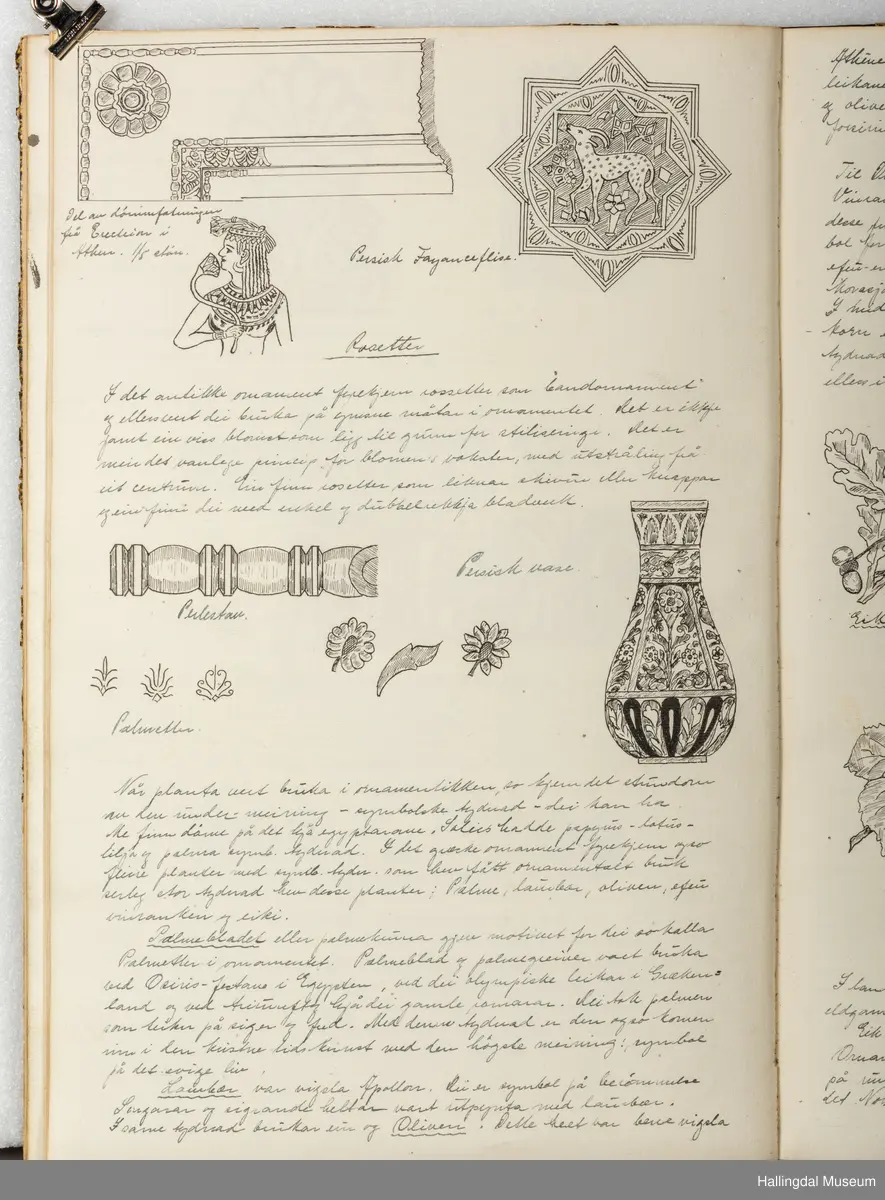 Del av dörinnfatningen
frå Erection i
Athen. 1/5 stör.
Persisk Fayanceflise.
Rosetter
I det antikke ornament fyrekjem rossetter som "bandornament"
og ellers vert dei bruka på ymsne måtar i ornamentet. Det er ikkje
jamt ein viss blomst som ligg til grunn for stiliseringi. Det er
men det vanlege princip for blomen's vokster, med utstråling frå
eit centrum. Ein finn rosetter som liknar skivur eller knappar
og ein finn dei med enkel og dubbel rekkja bladverk.
Persisk vase.
Perlestav.
Palmetter.
Når planta vert bruka i ornamentikken, so kjem det stundom
av den under-meining - symbolske tydnad - dei kan ha.
Me finn döme på det hjå egyptarane. Soleis hadde papyrus - lotus -
lilja og palma symb. tydnad. I det græske ornament fyrekjem ogso
fleire planter med symb. tyder. som hev fått ornamentalt bruk
serleg stor tydnad hev desse planter: Palme, laurbær, oliven, eføu
vinranken og eiki.
Palmebladet eller palmekruna gjev motivet for dei so kalla
Palmetter i ornamentet. Palmeblad og palmegreiner vart bruka
ved Osiris-festane i Egypten, ved dei olympiske leikar i Græken=
land og ved triumftog hjå dei gamle romarar. Dei tok palmen
som teikn på siger og fred. Med denne tydnad er den ogso komen
inn i den kristne tids kunst med den högste meining:, symbol
på det evige liv.
Laurbær var vigsla Apollon. Dei er symbol på berömmelse
Songarar og sigrande heltar vart utpynta med laurbær.
I same tydnad brukar ein og Oliven. Dette treet var berre vigsla
Athene
leikane
og olive
Til
desse
bol for
efeu-er
I mid
korn
tydnad
ellers i
Eik
I lan
eldgam
Eik
Ornam
på
det No
Hallingdal Museum